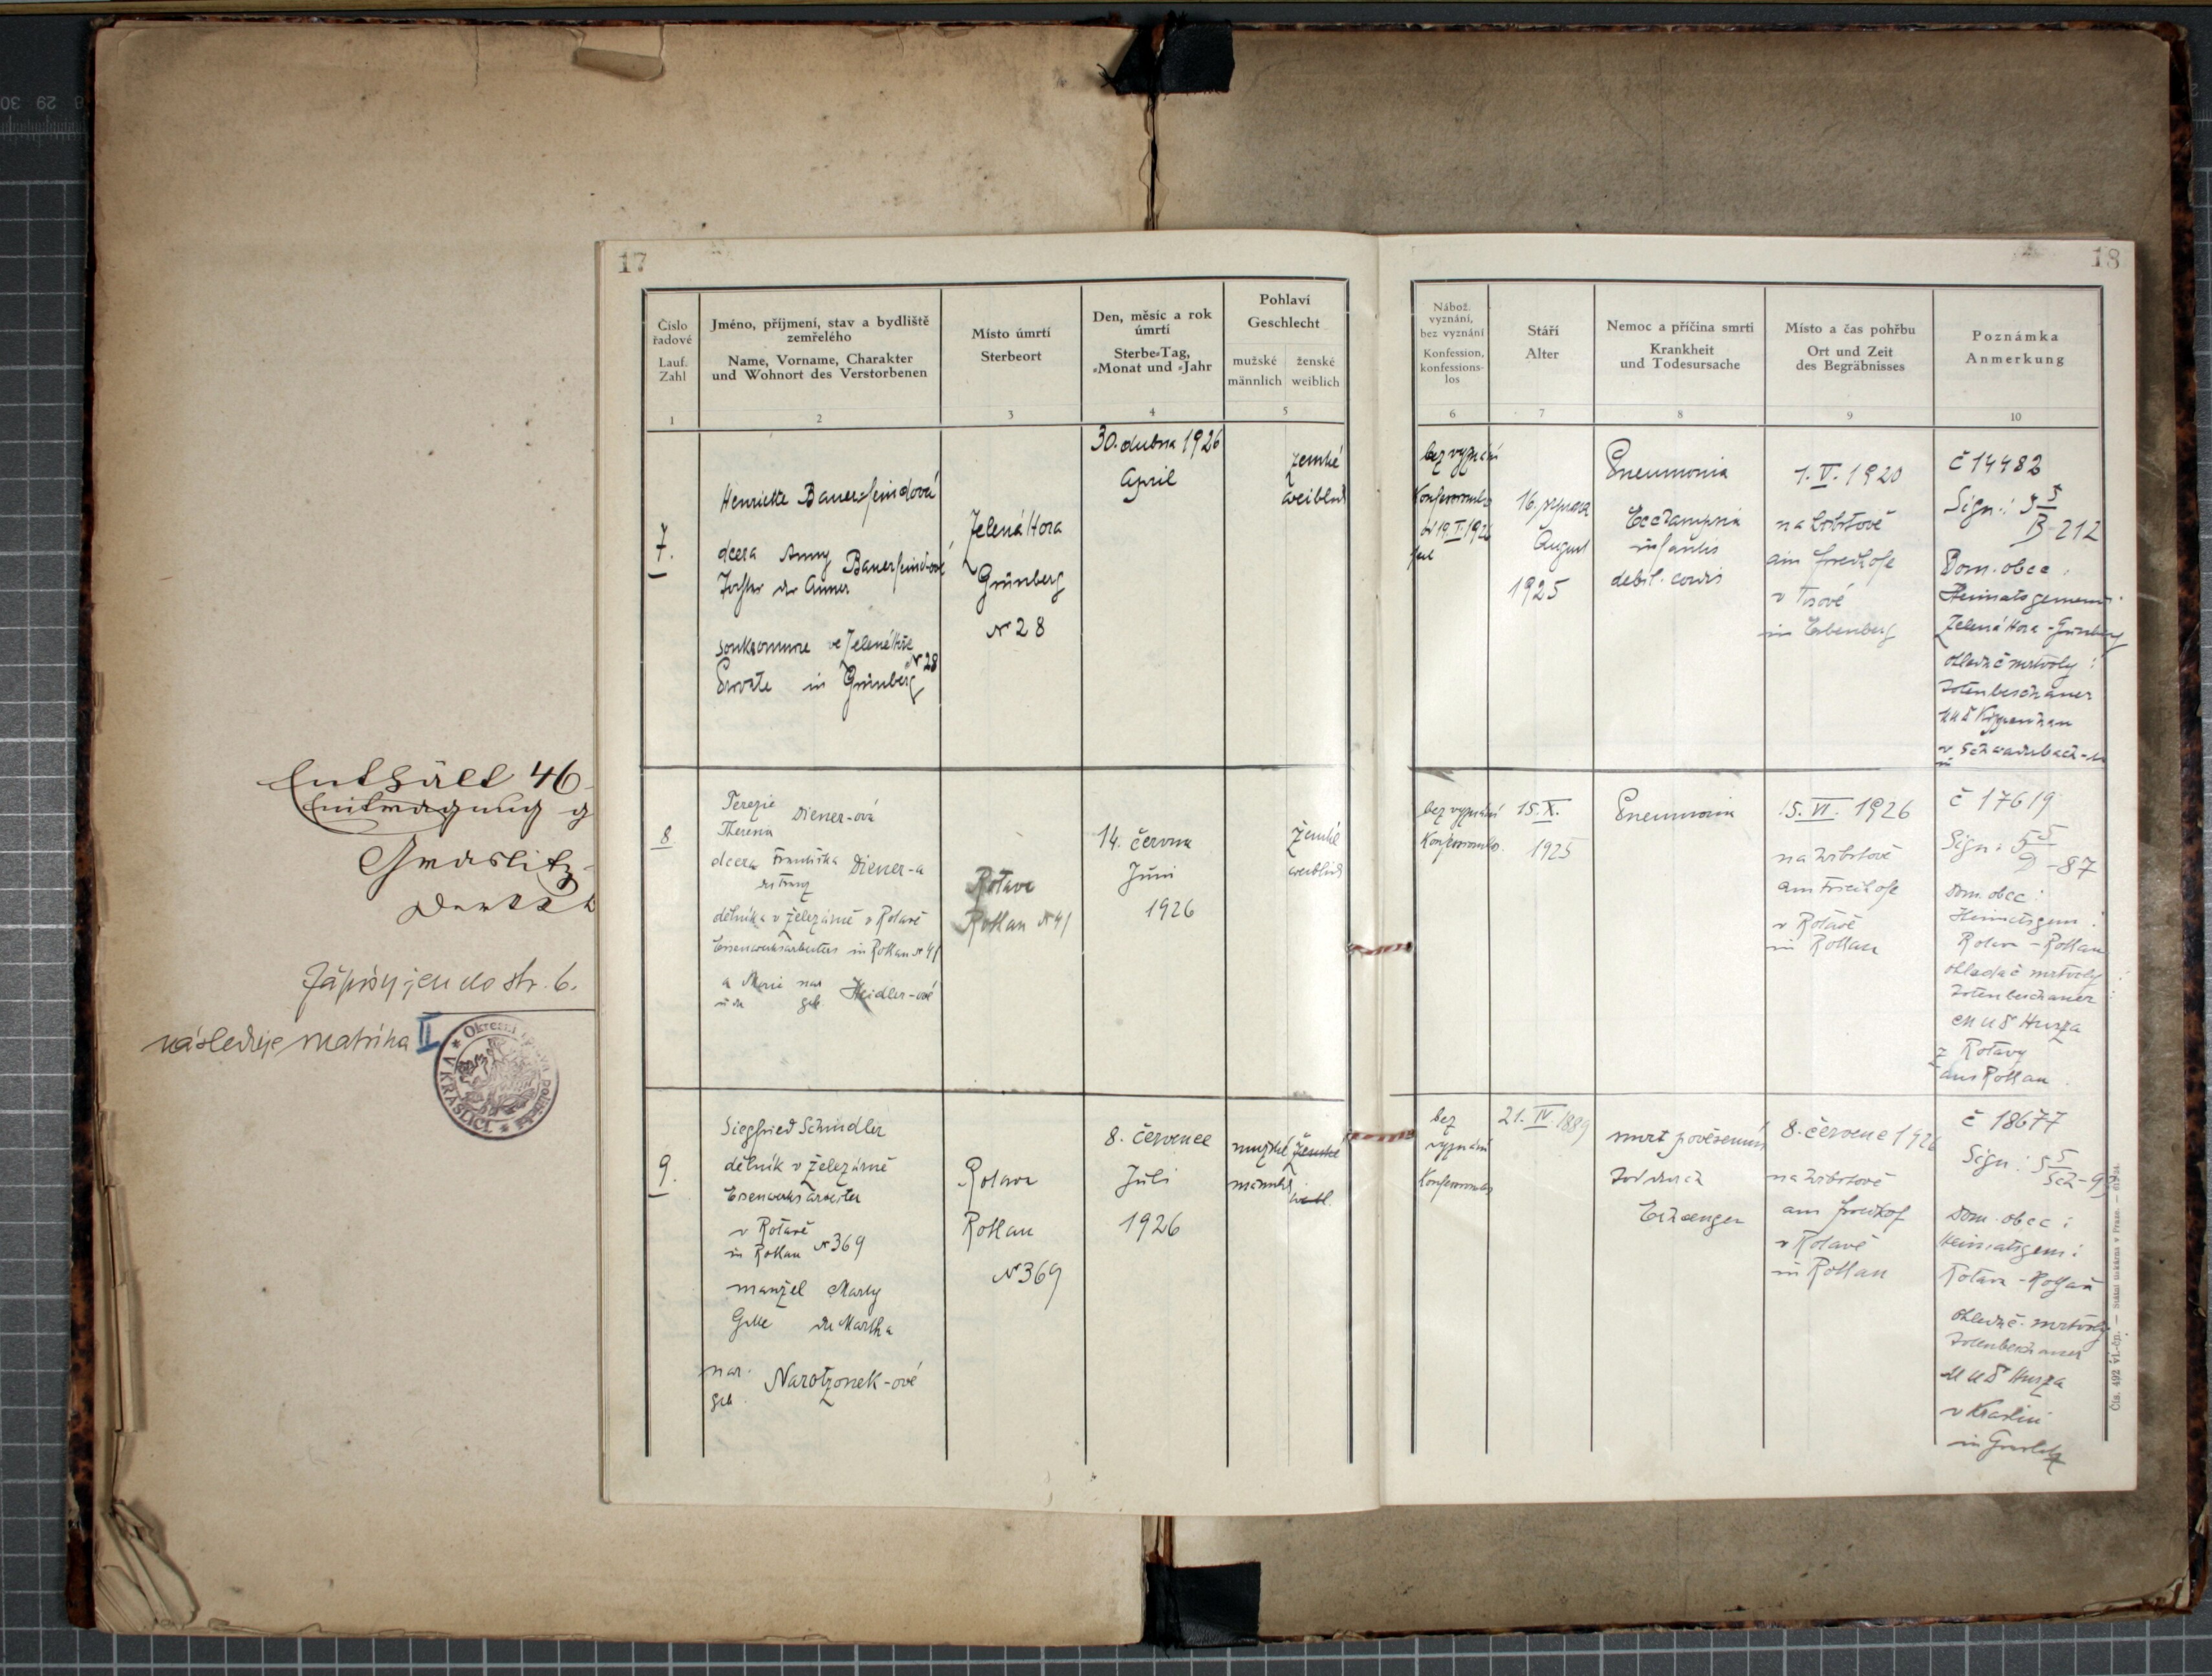 Enthält 46
Graslitz
Zápisy jen do str. 6.
následuje matrika II
V KRASLICI
17
Číslo řadové
Lauf. Zahl
Jméno, příjmení, stav a bydliště zemřelého
Name, Vorname, Charakter und Wohnort des Verstorbenen
Místo úmrtí
Sterbeort
Den, měsíc a rok úmrtí
Sterbe-Tag, -Monat und -Jahr
Pohlaví
Geschlecht
mužské
männlich
ženské
weiblich
1
2
3
4
5
7.
Henriette Bauer
dcera Anny
Tochter der Anna
soukromnice ve Zelené Hoře
Private in Grünberg № 28
Zelená Hora
Grünberg
№ 28
30. dubna 1926
April
ženské
weiblich
8
Terezie
Theresia
Diener-ová
dcera Františka Diener-a
des Franz
dělníka v železárně v Rotavě
Eisenwerksarbeiters in Rothau № 41
a Marie nar. Heidler-ové
u. der geb.
Rotava
Rothau № 41
14. června
Juni
1926
ženské
weiblich
9.
Siegfried Schindler
dělník v železárně
Eisenwerksarbeiter
v Rotavě
in Rothau № 369
manžel Marty
Gatte der Martha
nar.
geb.
Narotzonek-ové
Rotava
Rothau
№ 369
8. července
Juli
1926
mužské ženské
männlich weibl.
18
Nábož. vyznání, bez vyznání
Konfession, konfessions-los
Stáří
Alter
Nemoc a příčina smrti
Krankheit und Todesursache
Místo a čas pohřbu
Ort und Zeit des Begräbnisses
Poznámka
Anmerkung
6
7
8
9
10
bez vyznání
Konfessionslos
16. srpna
August
1925
Pneumonia
Ecclampsia
infantis
debil. cordis
1. V. 1920
na hřbitově
am Friedhofe
in
č 14482
Sign.: 5 5
B-212
Dom. obec:
Heimatsgemein:
Zelená Hora - Grünberg
ohledač mrtvoly:
Totenbeschauer
bez vyznání
Konfessionslos.
15. X.
1925
Pneumonia
15. VI. 1926
na hřbitově
am Friedhofe
v Rotavě
in Rothau
č 17619
Sign: 5 5
D-87
Dom. obec:
Heimatsgem:
Rotava - Rothau
ohledač mrtvoly:
Totenbeschauer:
MUDr Husza
z Rotavy
aus Rothau
bez
vyznání
Konfessionslos
21. IV. 1889
smrt pověšením
Tod durch
Erhängen
8. července 1926
na hřbitově
am Friedhof
v Rotavě
in Rothau
č 18677
Sign: 5 5
Dom. obec:
Heimatsgem:
Rotava - Rothau
Ohledač mrtvoly
Totenbeschauer
MUDr Husza
v Kraslici
in Graslitz
Čís. 492 vl.-čp. — Státní tiskárna v Praze.